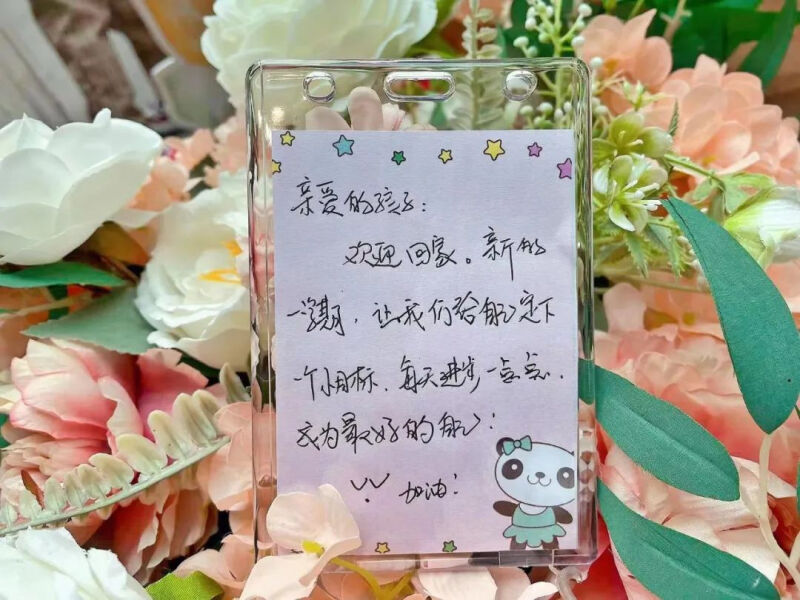 亲爱的孩子：
欢迎回家。新的
一学期，让我们给自己定下
一个小目标，每天进步一点点，
成为最好的自己！
加油！